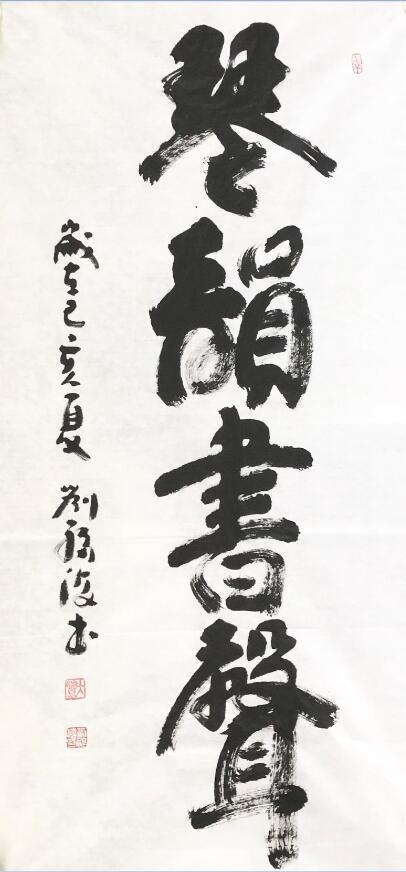 琴韻書聲
歲在己亥夏 劉福波書